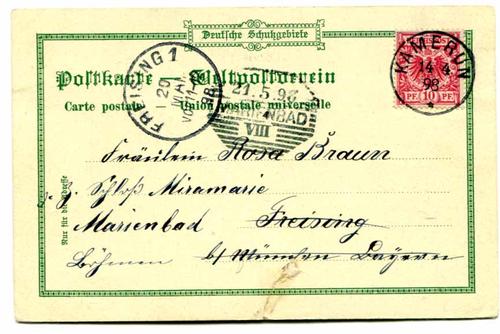 Deutsche Schutzgebiete
Postkarte Weltpostverein
Carte postale Union postale universelle
KAMERUN
14 4
98
PF 10 PF
FREISING 1
20 MAI
VOR 11
98
21.5.98
MARIENBAD
VIII
Fräulein Rosa Braun
z. Z. Schloß Miramarie
Marienbad Freising
Böhmen b/ München Bayern
Nur für die Adresse